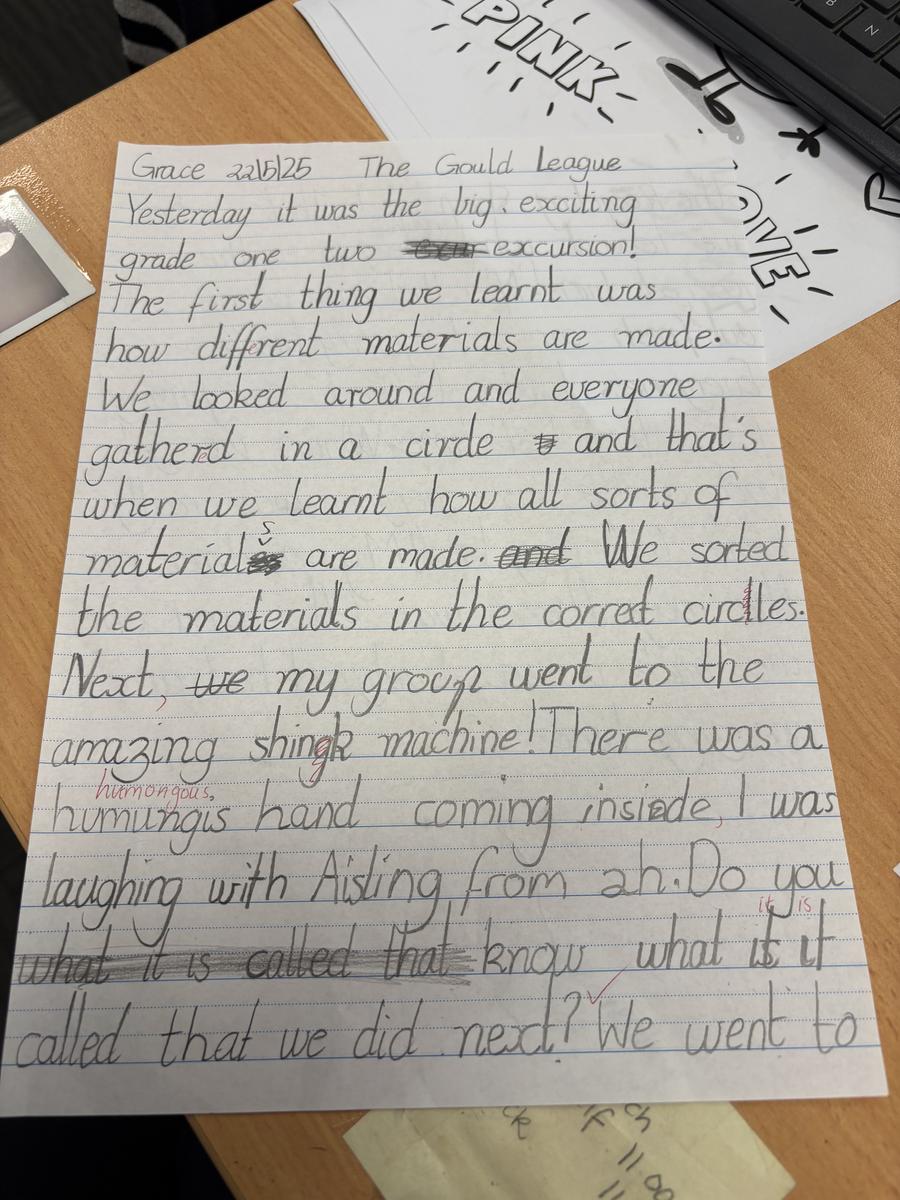 PINK
B
N
OVE
Grace 22/5/25 The Gould League
Yesterday it was the big. exciting
grade one two excursion!
The first thing we learnt was
how different materials are made.
We looked around and everyone
gatherd in a circle and that's
e
when we learnt how all sorts of
s
material are made. and We sorted
the materials in the correct circlles.
Next, we my group went to the
amazing machine! There was a
humongous,
humungis hand coming insiede, I was
laughing with Aisling from 2h. Do you
it is
what it is called that know what is it
called that we did next? We went to
11